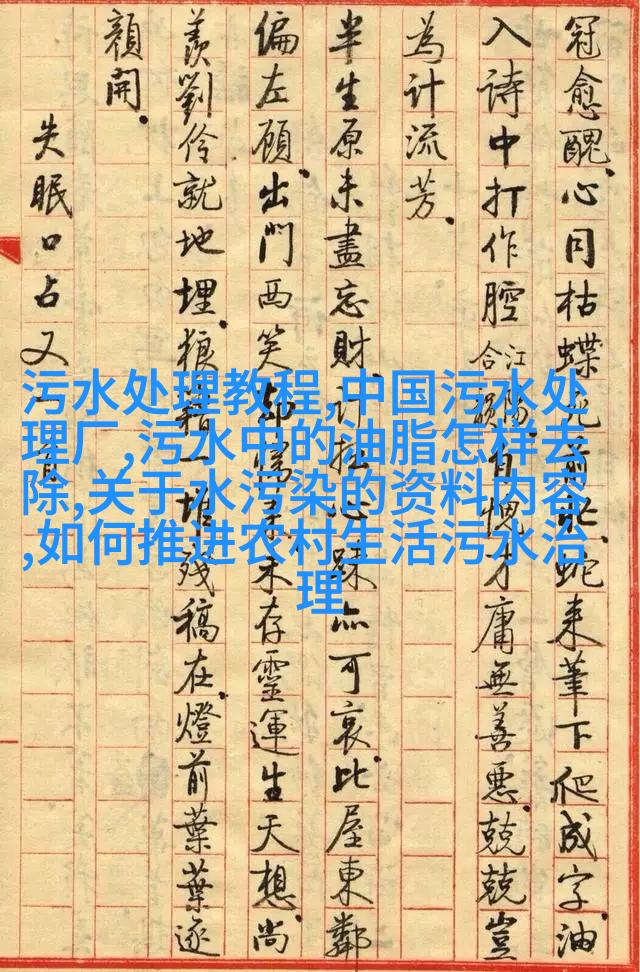 冠愈醜。心同枯蝶前蛇来筆下爬成字。油
入詩中打作腔江陽合韻有愧才庸無善惡。兢兢豈
為計流芳。
半生原未盡忘財。計拙心踈亦可哀。比屋東鄰
偏左顧。出門西笑却未存靈運生天想。尚
羨劉伶就地埋。狼藉一堆殘稿在。燈前葉葉逐
顏開。
失眠口占又一首
污水处理教程,中国污水处
理厂,污水中的油脂怎样去
除,关于水污染的资料内容
,如何推进农村生活污水治
理